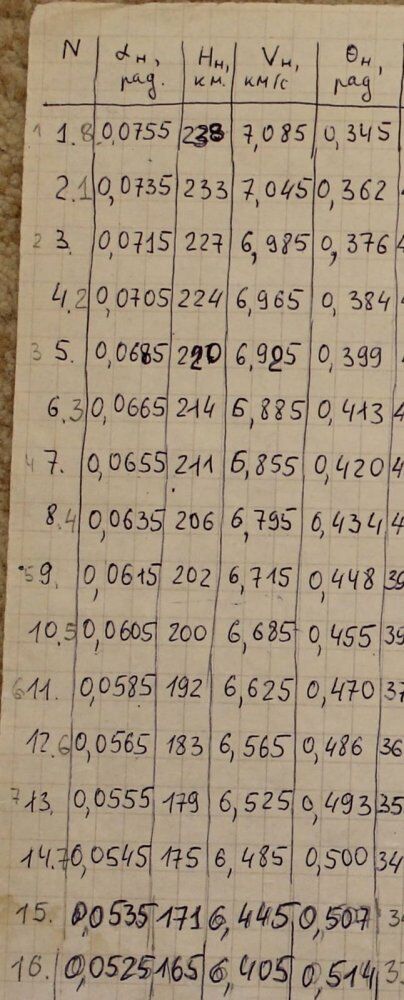 N αн, Hн, Vн, θн,
рад. км. км/с рад
1 1.8 0,0755 238 7,085 0,345
2.1 0,0735 233 7,045 0,362
2 3. 0,0715 227 6,985 0,376
4.2 0,0705 224 6,965 0,384
3 5. 0,0685 220 6,925 0,399
6.3 0,0665 214 6,885 0,413 4
4 7. 0,0655 211 6,855 0,420 4
8.4 0,0635 206 6,795 0,434 4
5 9. 0,0615 202 6,715 0,448 39
10.5 0,0605 200 6,685 0,455 39
6 11. 0,0585 192 6,625 0,470 37
12.6 0,0565 183 6,565 0,486 36
7 13. 0,0555 179 6,525 0,493 35
14.7 0,0545 175 6,485 0,500 34
15. 0,0535 171 6,445 0,507 3
16. 0,0525 165 6,405 0,514 3